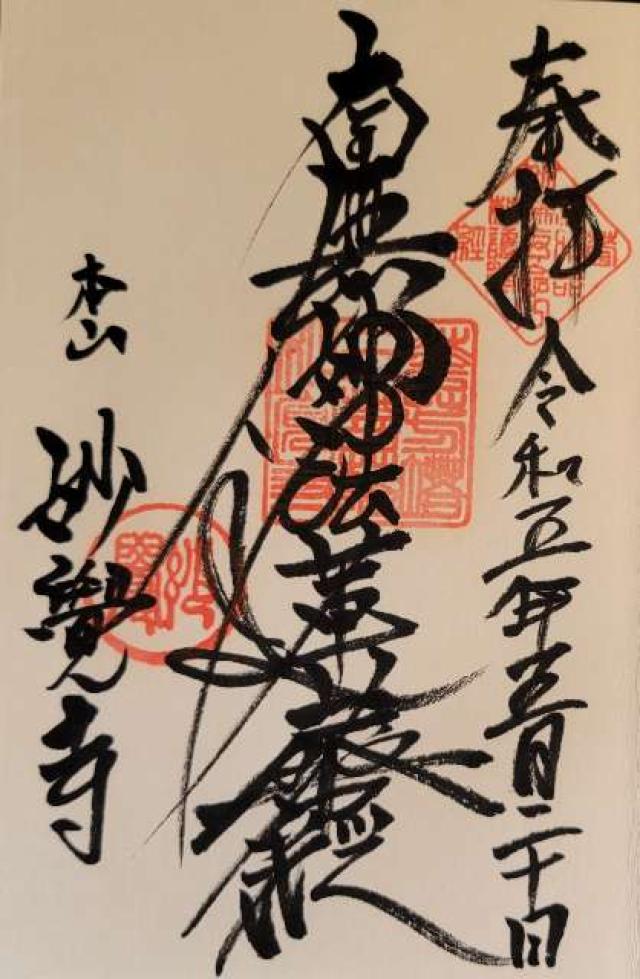 奉拝 令和五年三月二十日
南無妙法蓮華經
本山 妙覺寺